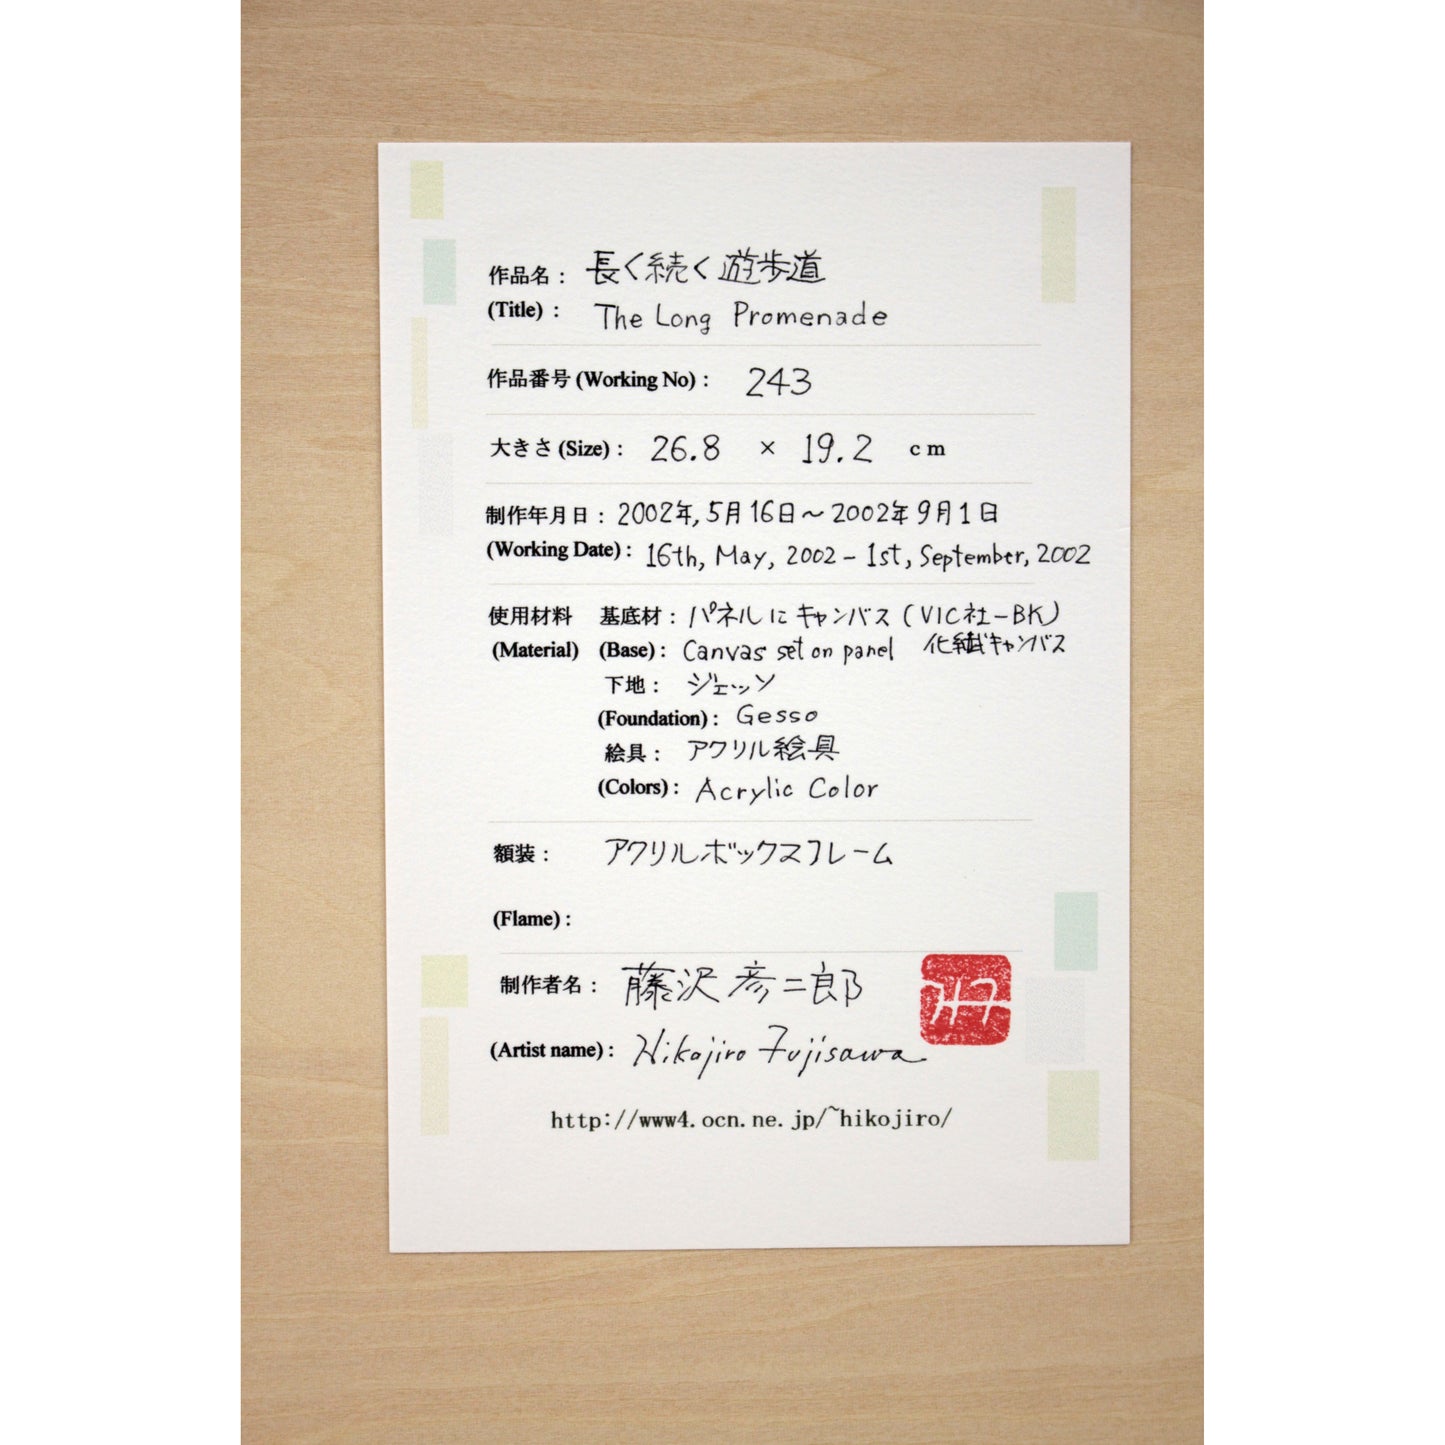 作品名： 長く続く遊歩道
(Title)： The Long Promenade
作品番号 (Working No)： 243
大きさ (Size)： 26.8 × 19.2 cm
制作年月日： 2002年, 5月16日～2002年9月1日
(Working Date)： 16th, May, 2002 – 1st, September, 2002
使用材料 基底材： パネルにキャンバス (VIC社-BK)
(Material) (Base)： Canvas set on panel 化繊キャンバス
下地： ジェッソ
(Foundation)： Gesso
絵具： アクリル絵具
(Colors)： Acrylic Color
額装： アクリルボックスフレーム
(Flame)：
制作者名： 藤沢彦二郎
(Artist name)： Hikojiro Fujisawa
http://www4.ocn.ne.jp/~hikojiro/